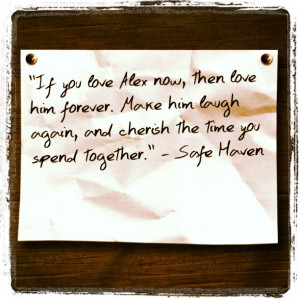 "If you love Alex now, then love
him forever. Make him laugh
again, and cherish the time you
spend together." - Safe Haven